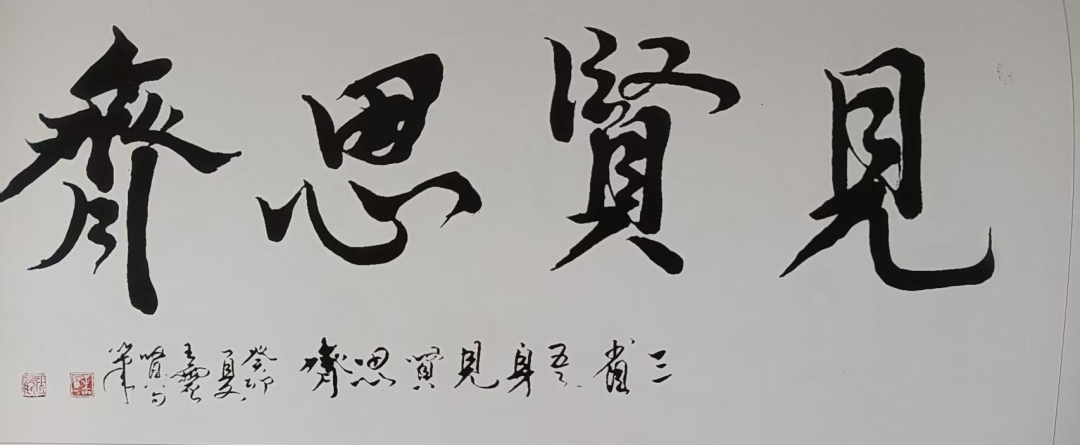 見賢思齊
三省吾身見賢思齊
癸卯
夏